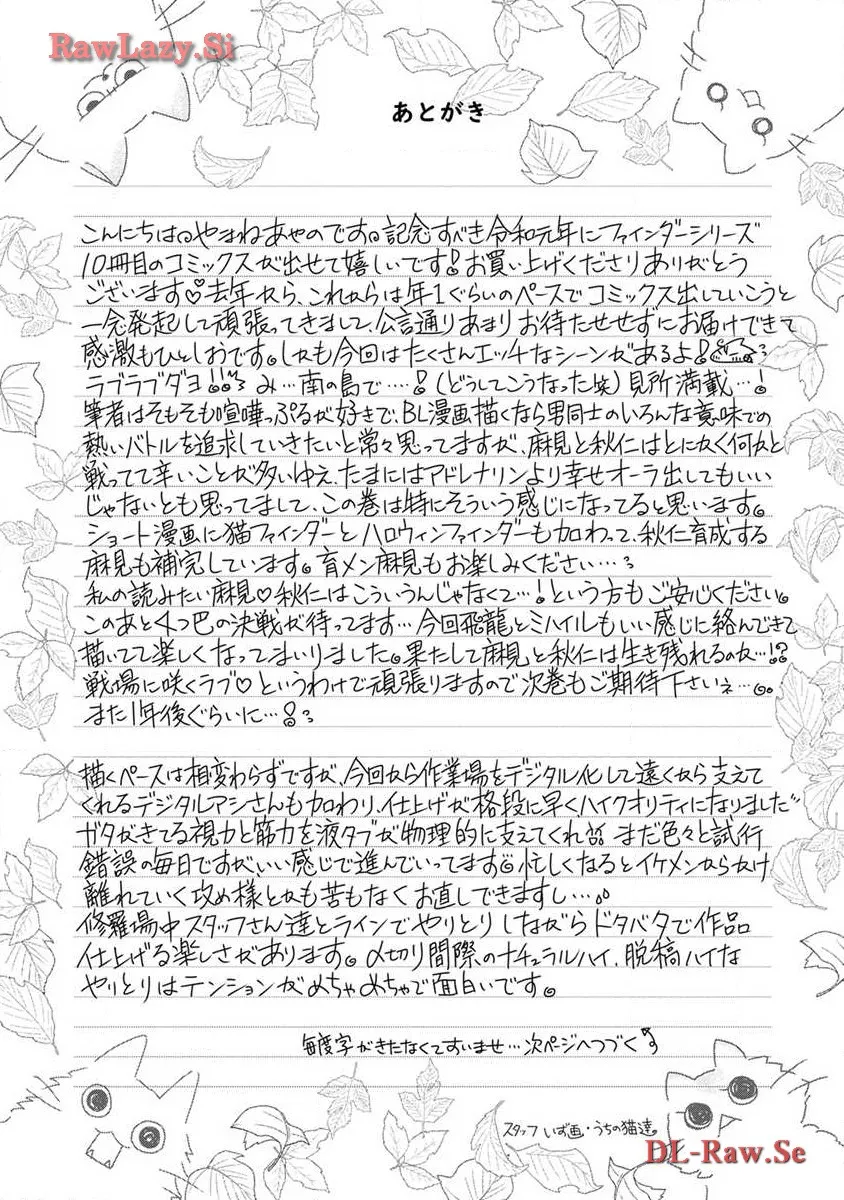 RawLazy.Si
あとがき
こんにちは。やまねあやのです。記念すべき令和元年にファインダーシリーズ
10冊目のコミックスが出せて嬉しいです!お買い上げくださりありがとう
ございます♡去年から、これからは年1ぐらいのペースでコミックス出していこうと
一念発起して頑張ってきまして、公言通りあまりお待たせせずにお届けできて
感激もひとしおです。しかも今回はたくさんエッチなシーンがあるよ!
ラブラブダヨ!!み…南の島で……!(どうしてこうなった笑)見所満載…!
筆者はそもそも喧嘩っぷるが好きで、BL漫画描くなら男同士のいろんな意味での
熱いバトルを追求していきたいと常々思ってますが、麻見と秋仁はとにかく何かと
戦ってて辛いことが多いゆえ、たまにはアドレナリンより幸せオーラ出してもいい
じゃないとも思ってまして、この巻は特にそういう感じになってると思います。
ショート漫画に猫ファインダーとハロウィンファインダーも加わって、秋仁育成する
麻見も補完しています。育メン麻見もお楽しみください…
私の読みたい麻見♡秋仁はこういうんじゃなくて…!という方もご安心ください。
このあと4つ巴の決戦が待ってます…今回飛龍とミハイルもいい感じに絡んできて
描いてて楽しくなってまいりました。果たして麻見と秋仁は生き残れるのか…!?
戦場に咲くラブ♡というわけで頑張りますので次巻もご期待下さいぇ…。
また1年後ぐらいに…!
描くペースは相変わらずですが、今回から作業場をデジタル化して遠くから支えて
くれるデジタルアシさんも加わり、仕上げが格段に早くハイクオリティになりました
ガタがきてる視力と筋力を液タブが物理的に支えてくれ まだ色々と試行
錯誤の毎日ですがいい感じで進んでいってます 忙しくなるとイケメンからかけ
離れていく攻め様とかも苦もなくお直しできますし…
修羅場中スタッフさん達とラインでやりとりしながらドタバタで作品
仕上げる楽しさがあります。〆切り間際のナチュラルハイ、脱稿ハイな
やりとりはテンションがめちゃめちゃで面白いです。
毎度字がきたなくてすいませ…次ページへつづく
スタッフ いず画・うちの猫達。
DL-Raw.Se